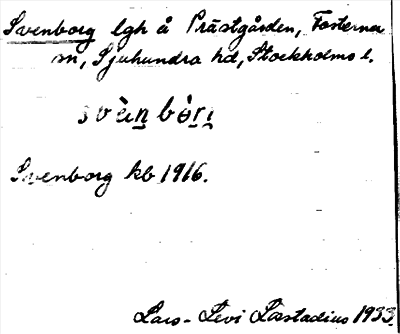 Svenborg lgh å Prästgården, Fosterna
sn, Sjuhundra hd, Stockholms l.
svèn bòrị
Svenborg kb 1916.
Lars-Levi Læstadius 1933.